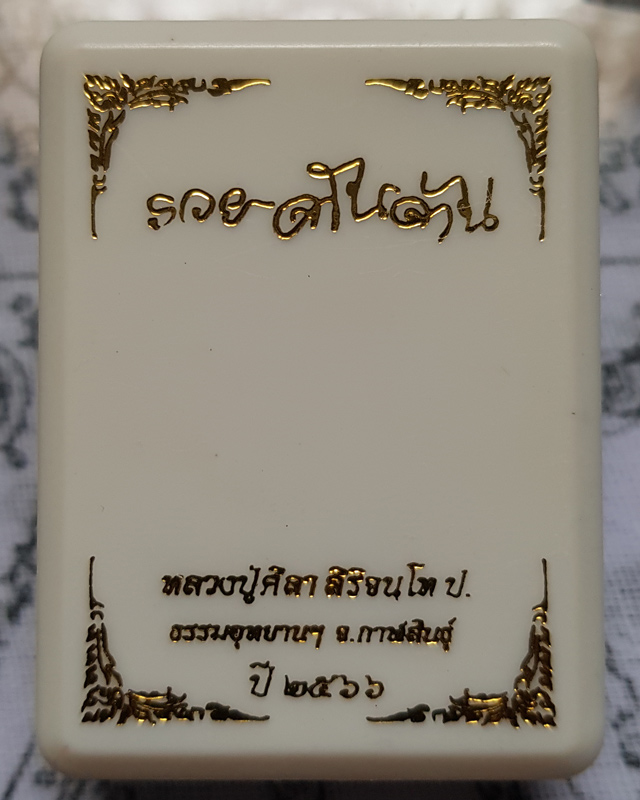 รวยดันด้าน
หลวงปู่ศิลา สิริจนฺโท ป.
ธรรมอุทยานฯ จ.กาฬสินธุ์
ปี ๒๕๖๖